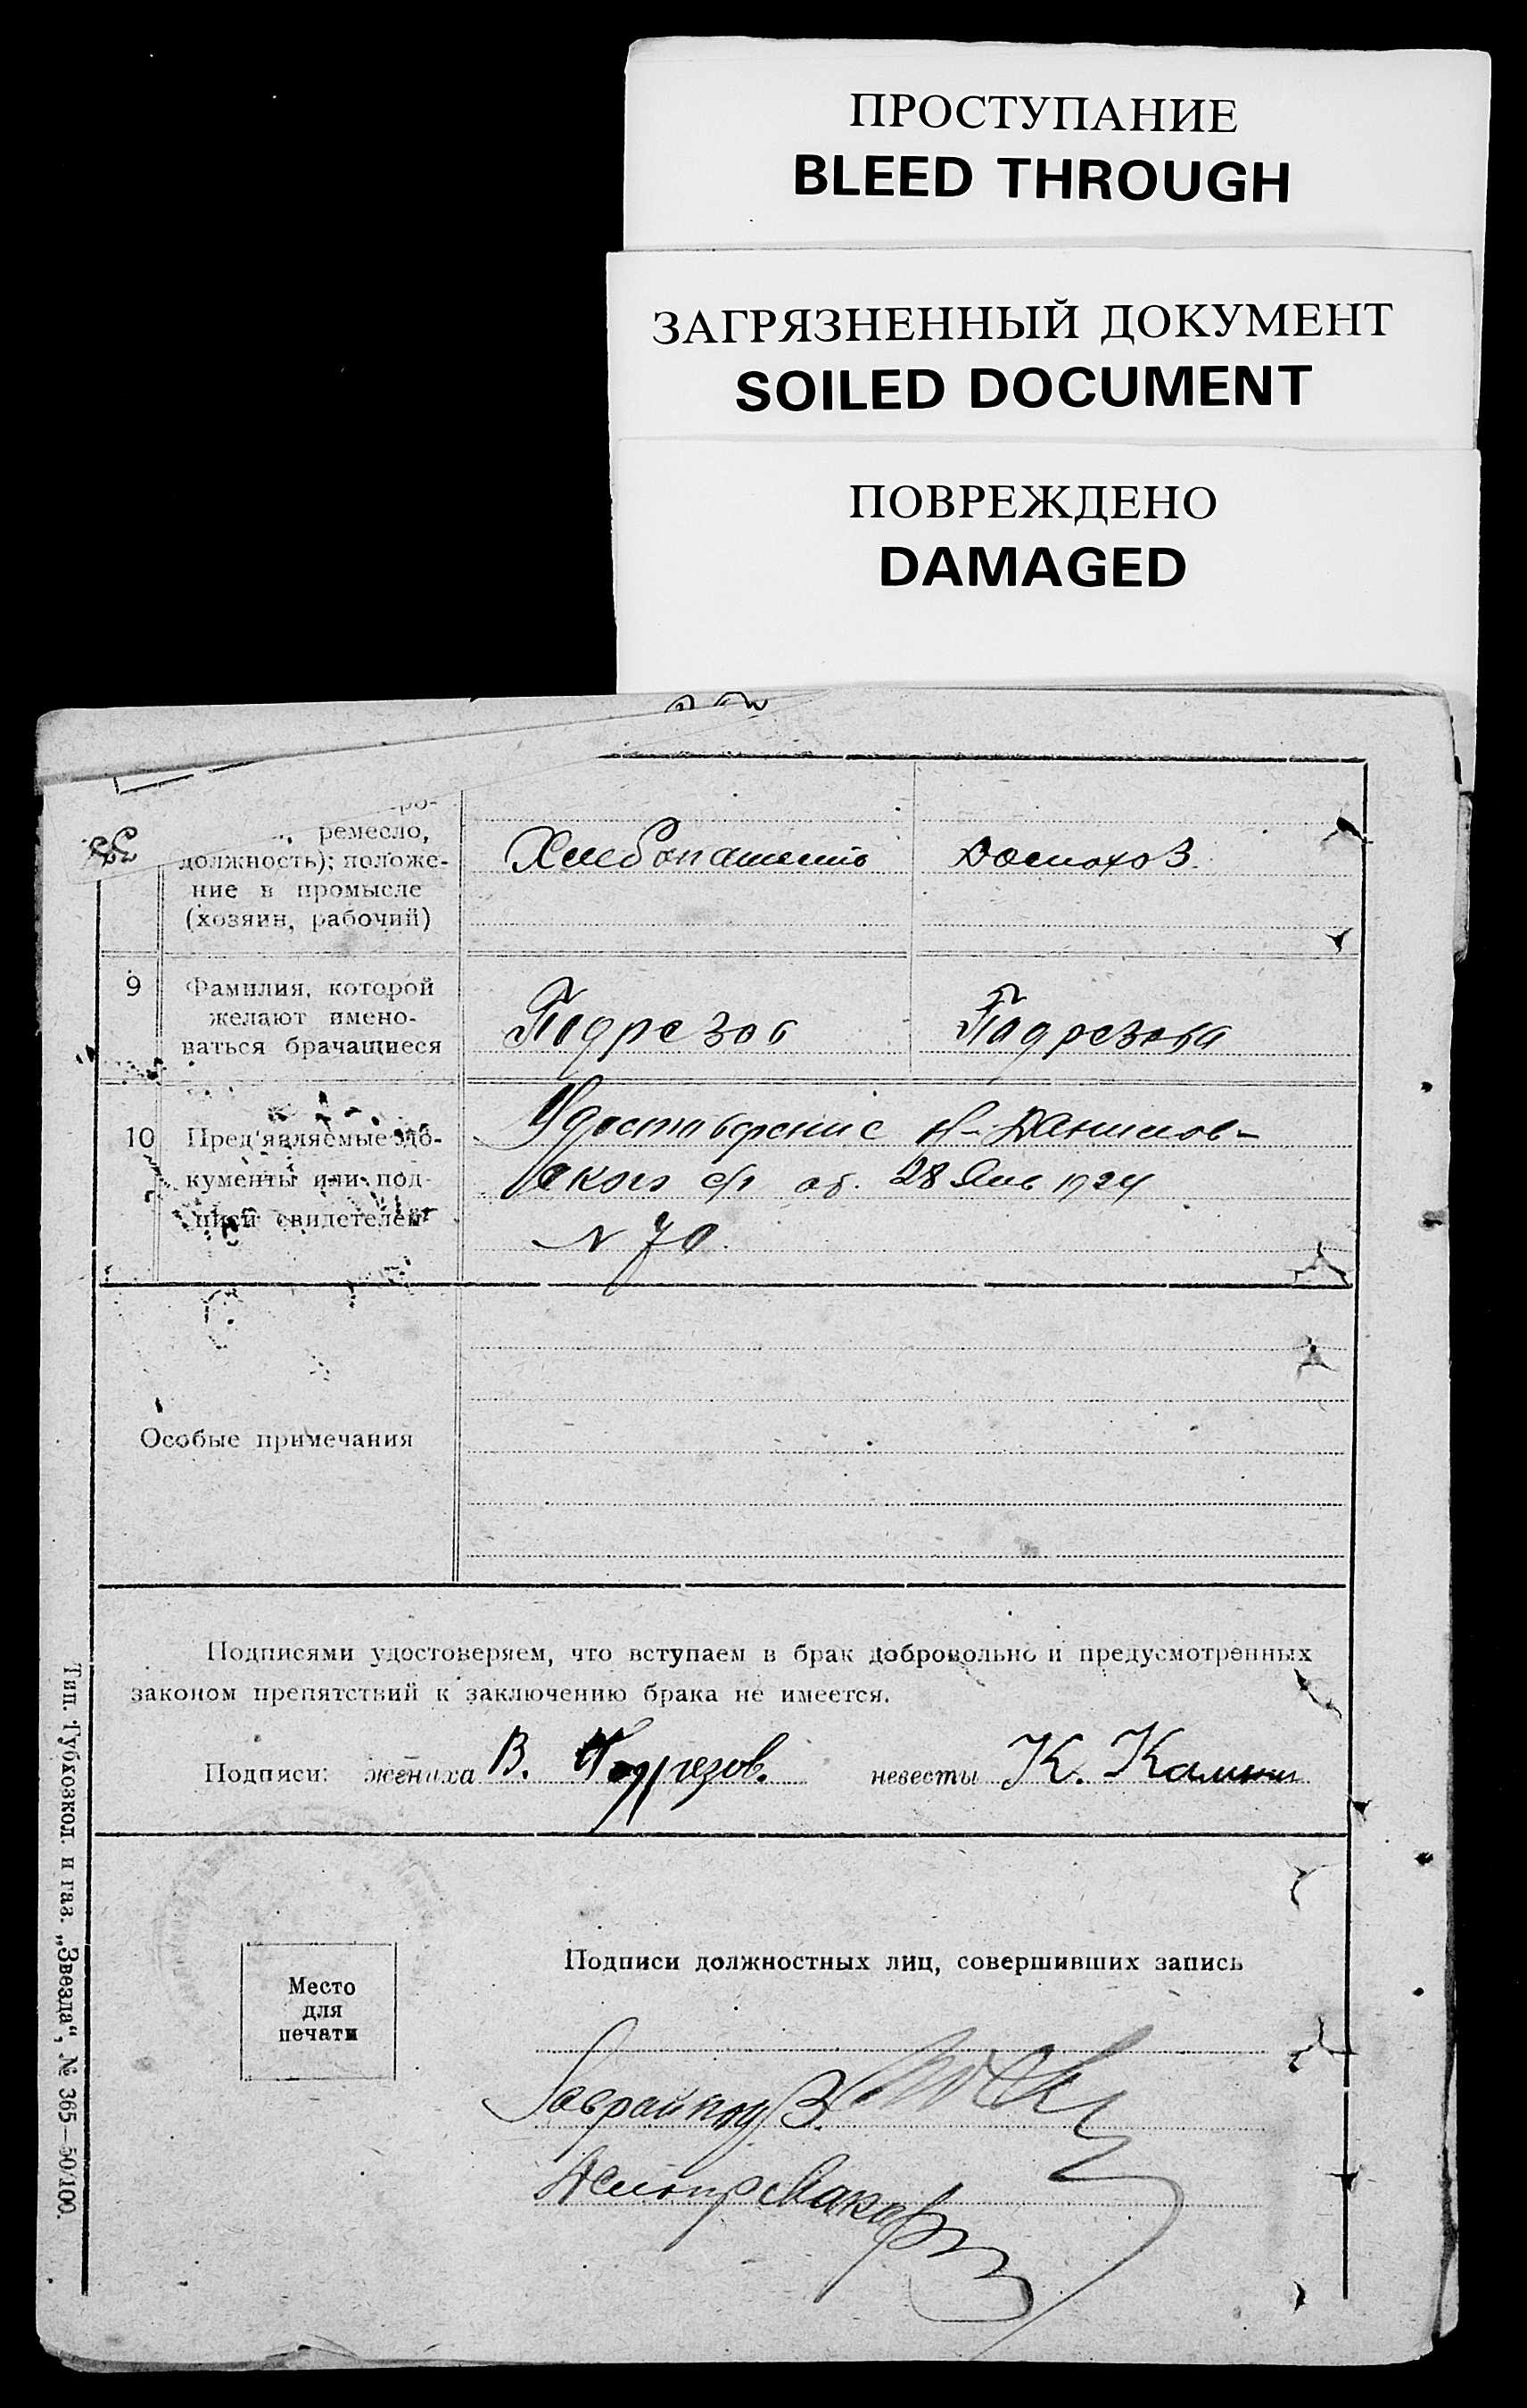 ПРОСТУПАНИЕ
BLEED THROUGH
ЗАГРЯЗНЕННЫЙ ДОКУМЕНТ
SOILED DOCUMENT
ПОВРЕЖДЕНО
DAMAGED
ремесло,
должность); положе-
ние в промысле
(хозяин, рабочий)
Хлебопашество
Домохоз.
9
Фамилия, которой
желают имено-
ваться брачащиеся
Подрезов
Подрезова
10
Пред'являемые до-
кументы или под-
писи свидетелей
Удостоверение Н-Данилов-
ского с/с от. 28 Янв 1924
N 70.
Особые примечания
Подписями удостоверяем, что вступаем в брак добровольно и предусмотренных
законом препятствий к заключению брака не имеется.
Подписи: жениха В. Подрезов. невесты К. Калини
Место
для
печати
Подписи должностных лиц, совершивших запись
Делопр Макар
Тип. Губкозкол. и газ. „Звезда“, № 365—50/100.